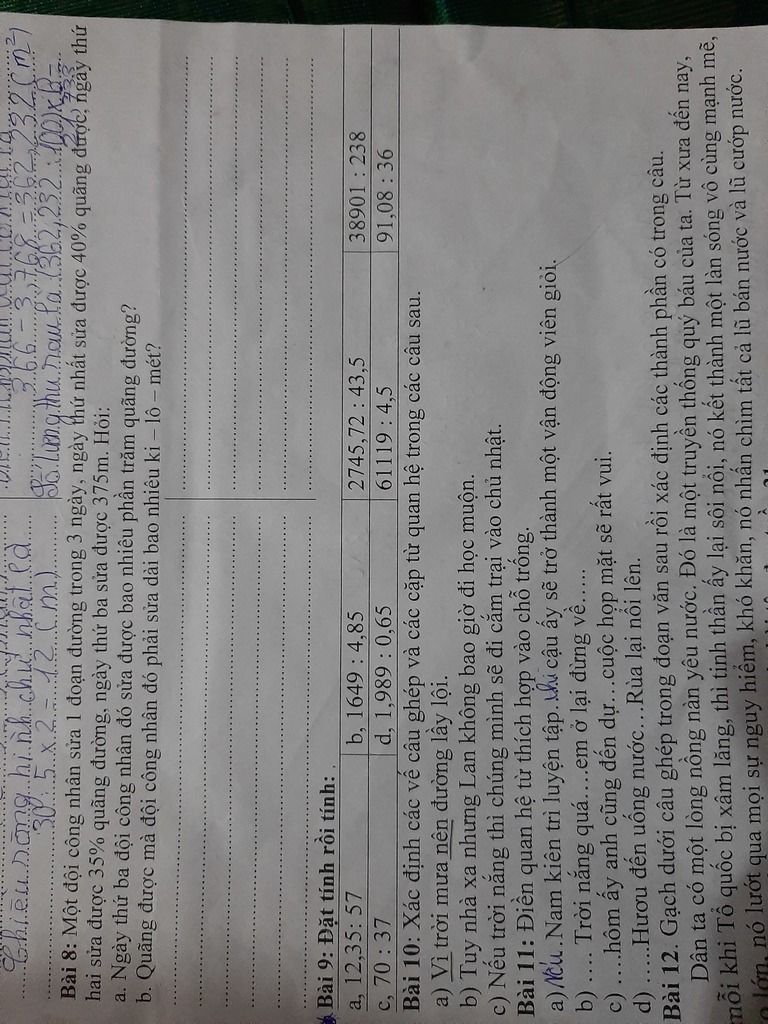 Chiều rộng hình chữ nhật là
30 : 5 x 2 = 12 (m)
366 - 3,768 = 362,232 (m²)
Số lượng thu rau là (362,232 : 100) x
Bài 8: Một đội công nhân sửa 1 đoạn đường trong 3 ngày, ngày thứ nhất sửa được 40% quãng được, ngày thứ
hai sửa được 35% quãng đường, ngày thứ ba sửa được 375m. Hỏi:
a. Ngày thứ ba đội công nhân đó sửa được bao nhiêu phần trăm quãng đường?
b. Quãng được mà đội công nhân đó phải sửa dài bao nhiêu ki – lô – mét?
Bài 9: Đặt tính rồi tính:
a, 12,35: 57 b, 1649 : 4,85 2745,72 : 43,5 38901 : 238
c, 70 : 37 d, 1,989 : 0,65 61119 : 4,5 91,08 : 36
Bài 10: Xác định các vế câu ghép và các cặp từ quan hệ trong các câu sau.
a) Vì trời mưa nên đường lầy lội.
b) Tuy nhà xa nhưng Lan không bao giờ đi học muộn.
c) Nếu trời nắng thì chúng mình sẽ đi cắm trại vào chủ nhật.
Bài 11: Điền quan hệ từ thích hợp vào chỗ trống.
a) Nếu..Nam kiên trì luyện tập..thì cậu ấy sẽ trở thành một vận động viên giỏi.
b) .... Trời nắng quá....em ở lại đừng về.....
c) ....hôm ấy anh cũng đến dự...cuộc họp mặt sẽ rất vui.
d) ......Hươu đến uống nước...Rùa lại nổi lên.
Bài 12. Gạch dưới câu ghép trong đoạn văn sau rồi xác định các thành phần có trong câu.
Dân ta có một lòng nồng nàn yêu nước. Đó là một truyền thống quý báu của ta. Từ xưa đến nay,
mỗi khi Tổ quốc bị xâm lăng, thì tinh thần ấy lại sôi nổi, nó kết thành một làn sóng vô cùng mạnh mẽ,
lớn, nó lướt qua mọi sự nguy hiểm, khó khăn, nó nhấn chìm tất cả lũ bán nước và lũ cướp nước.